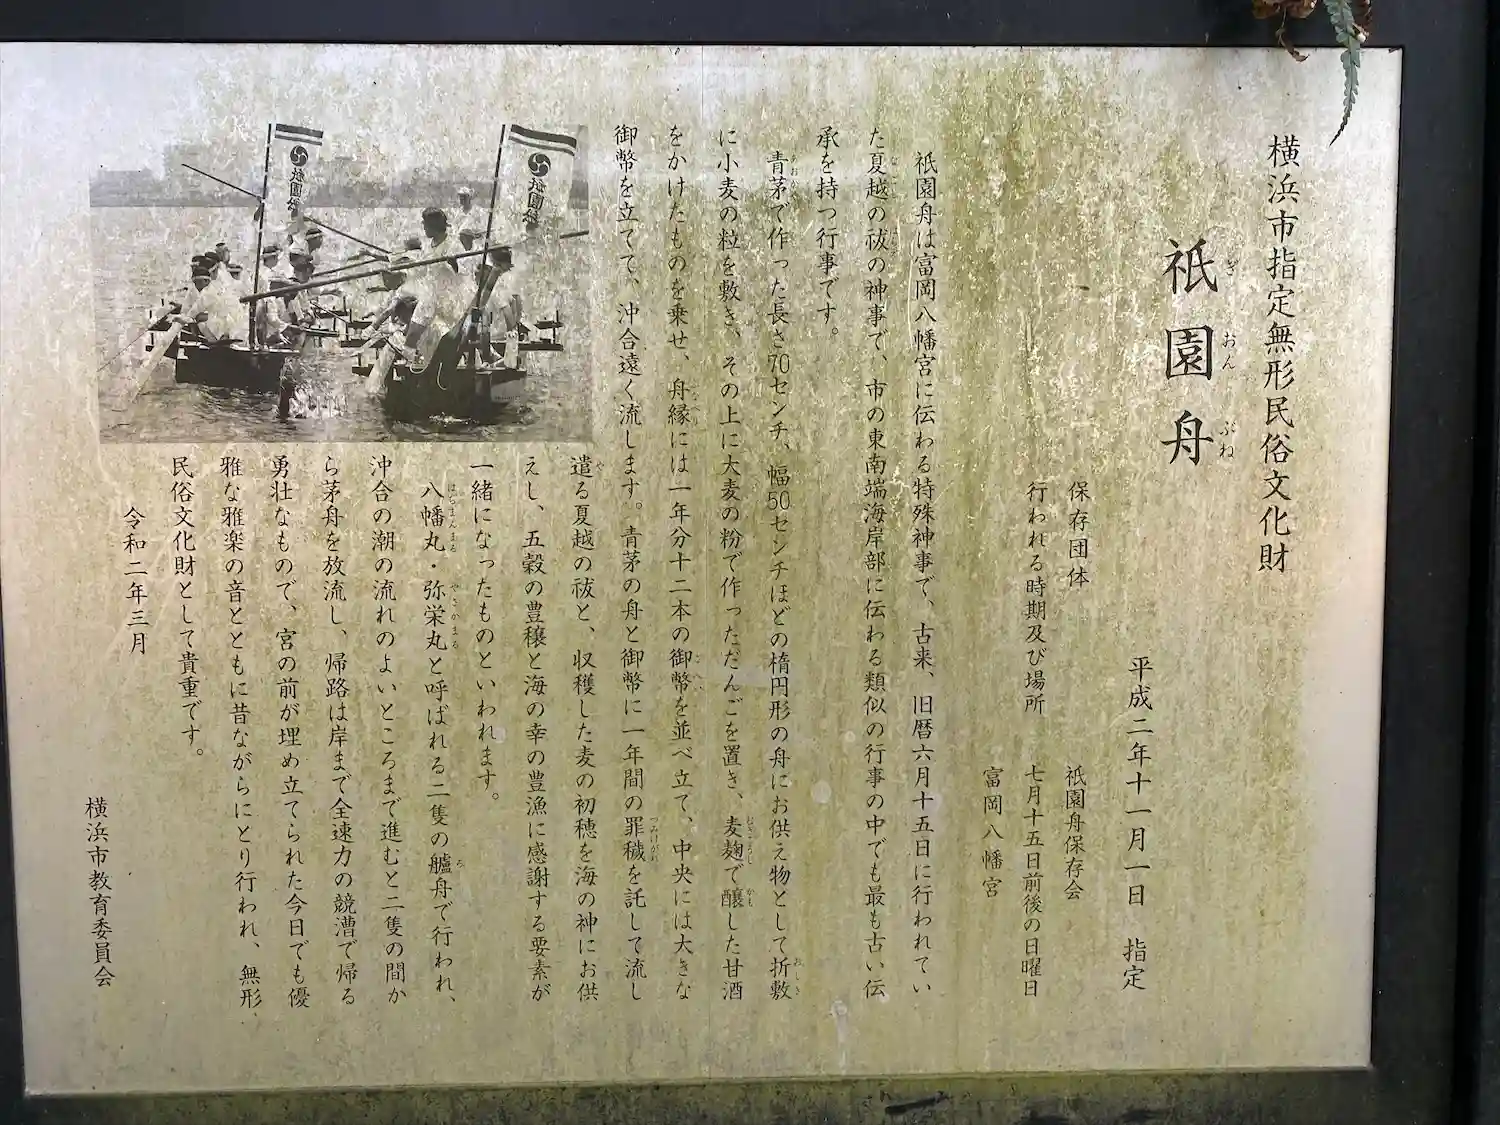 横浜市指定無形民俗文化財
祇園舟
ぎおんぶね
平成二年十一月一日 指定
保存団体 祇園舟保存会
行われる時期及び場所 七月十五日前後の日曜日
富岡八幡宮
祇園舟は富岡八幡宮に伝わる特殊神事で、古来、旧暦六月十五日に行われてい
た夏越の祓の神事で、市の東南端海岸部に伝わる類似の行事の中でも最も古い伝
承を持つ行事です。
青茅で作った長さ70センチ、幅50センチほどの楕円形の舟にお供え物として折敷
に小麦の粒を敷き、その上に大麦の粉で作っただんごを置き、麦麹で醸した甘酒
をかけたものを乗せ、舟縁には一年分十二本の御幣を並べ立て、中央には大きな
御幣を立てて、沖合遠く流します。青茅の舟と御幣に一年間の罪穢を託して流し
遣る夏越の祓と、収穫した麦の初穂を海の神にお供
えし、五穀の豊穣と海の幸の豊漁に感謝する要素が
一緒になったものといわれます。
八幡丸・弥栄丸と呼ばれる二隻の艫舟で行われ、
沖合の潮の流れのよいところまで進むと二隻の間か
ら茅舟を放流し、帰路は岸まで全速力の競漕で帰る
勇壮なもので、宮の前が埋め立てられた今日でも優
雅な雅楽の音とともに昔ながらにとり行われ、無形
民俗文化財として貴重です。
令和二年三月
横浜市教育委員会